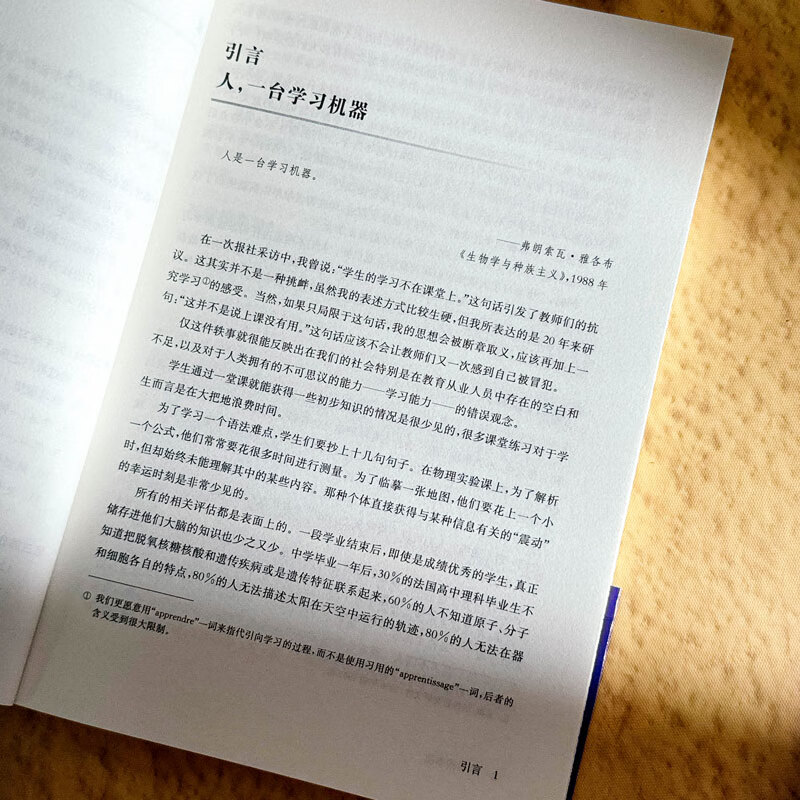 引言
人，一台学习机器
人是一台学习机器。
——弗朗索瓦·雅各布
《生物学与种族主义》，1988 年
在一次报社采访中，我曾说：“学生的学习不在课堂上。”这句话引发了教师们的抗
议。这其实并不是一种挑衅，虽然我的表述方式比较生硬，但我所表达的是 20 年来研
究学习①的感受。当然，如果只局限于这句话，我的思想会被断章取义，应该再加上一
句：“这并不是说上课没有用。”这句话应该不会让教师们又一次感到自己被冒犯。
仅这件轶事就很能反映出在我们的社会特别是在教育从业人员中存在的空白和
不足，以及对于人类拥有的不可思议的能力——学习能力——的错误观念。
学生通过一堂课就能获得一些初步知识的情况是很少见的，很多课堂练习对于学
生而言是在大把地浪费时间。
为了学习一个语法难点，学生们要抄上十几句句子。在物理实验课上，为了解析
一个公式，他们常常要花很多时间进行测量。为了临摹一张地图，他们要花上一个小
时，但却始终未能理解其中的某些内容。那种个体直接获得与某种信息有关的“震动”
的幸运时刻是非常少见的。
所有的相关评估都是表面上的。一段学业结束后，即使是成绩优秀的学生，真正
储存进他们大脑的知识也少之又少。中学毕业一年后，30%的法国高中理科毕业生不
知道把脱氧核糖核酸和遗传疾病或是遗传特征联系起来，60%的人不知道原子、分子
和细胞各自的特点，80%的人无法描述太阳在天空中运行的轨迹，80%的人无法在器
① 我们更愿意用“apprendre”一词来指代引向学习的过程，而不是使用习用的“apprentissage”一词，后者的
含义受到很大限制。
引言 1